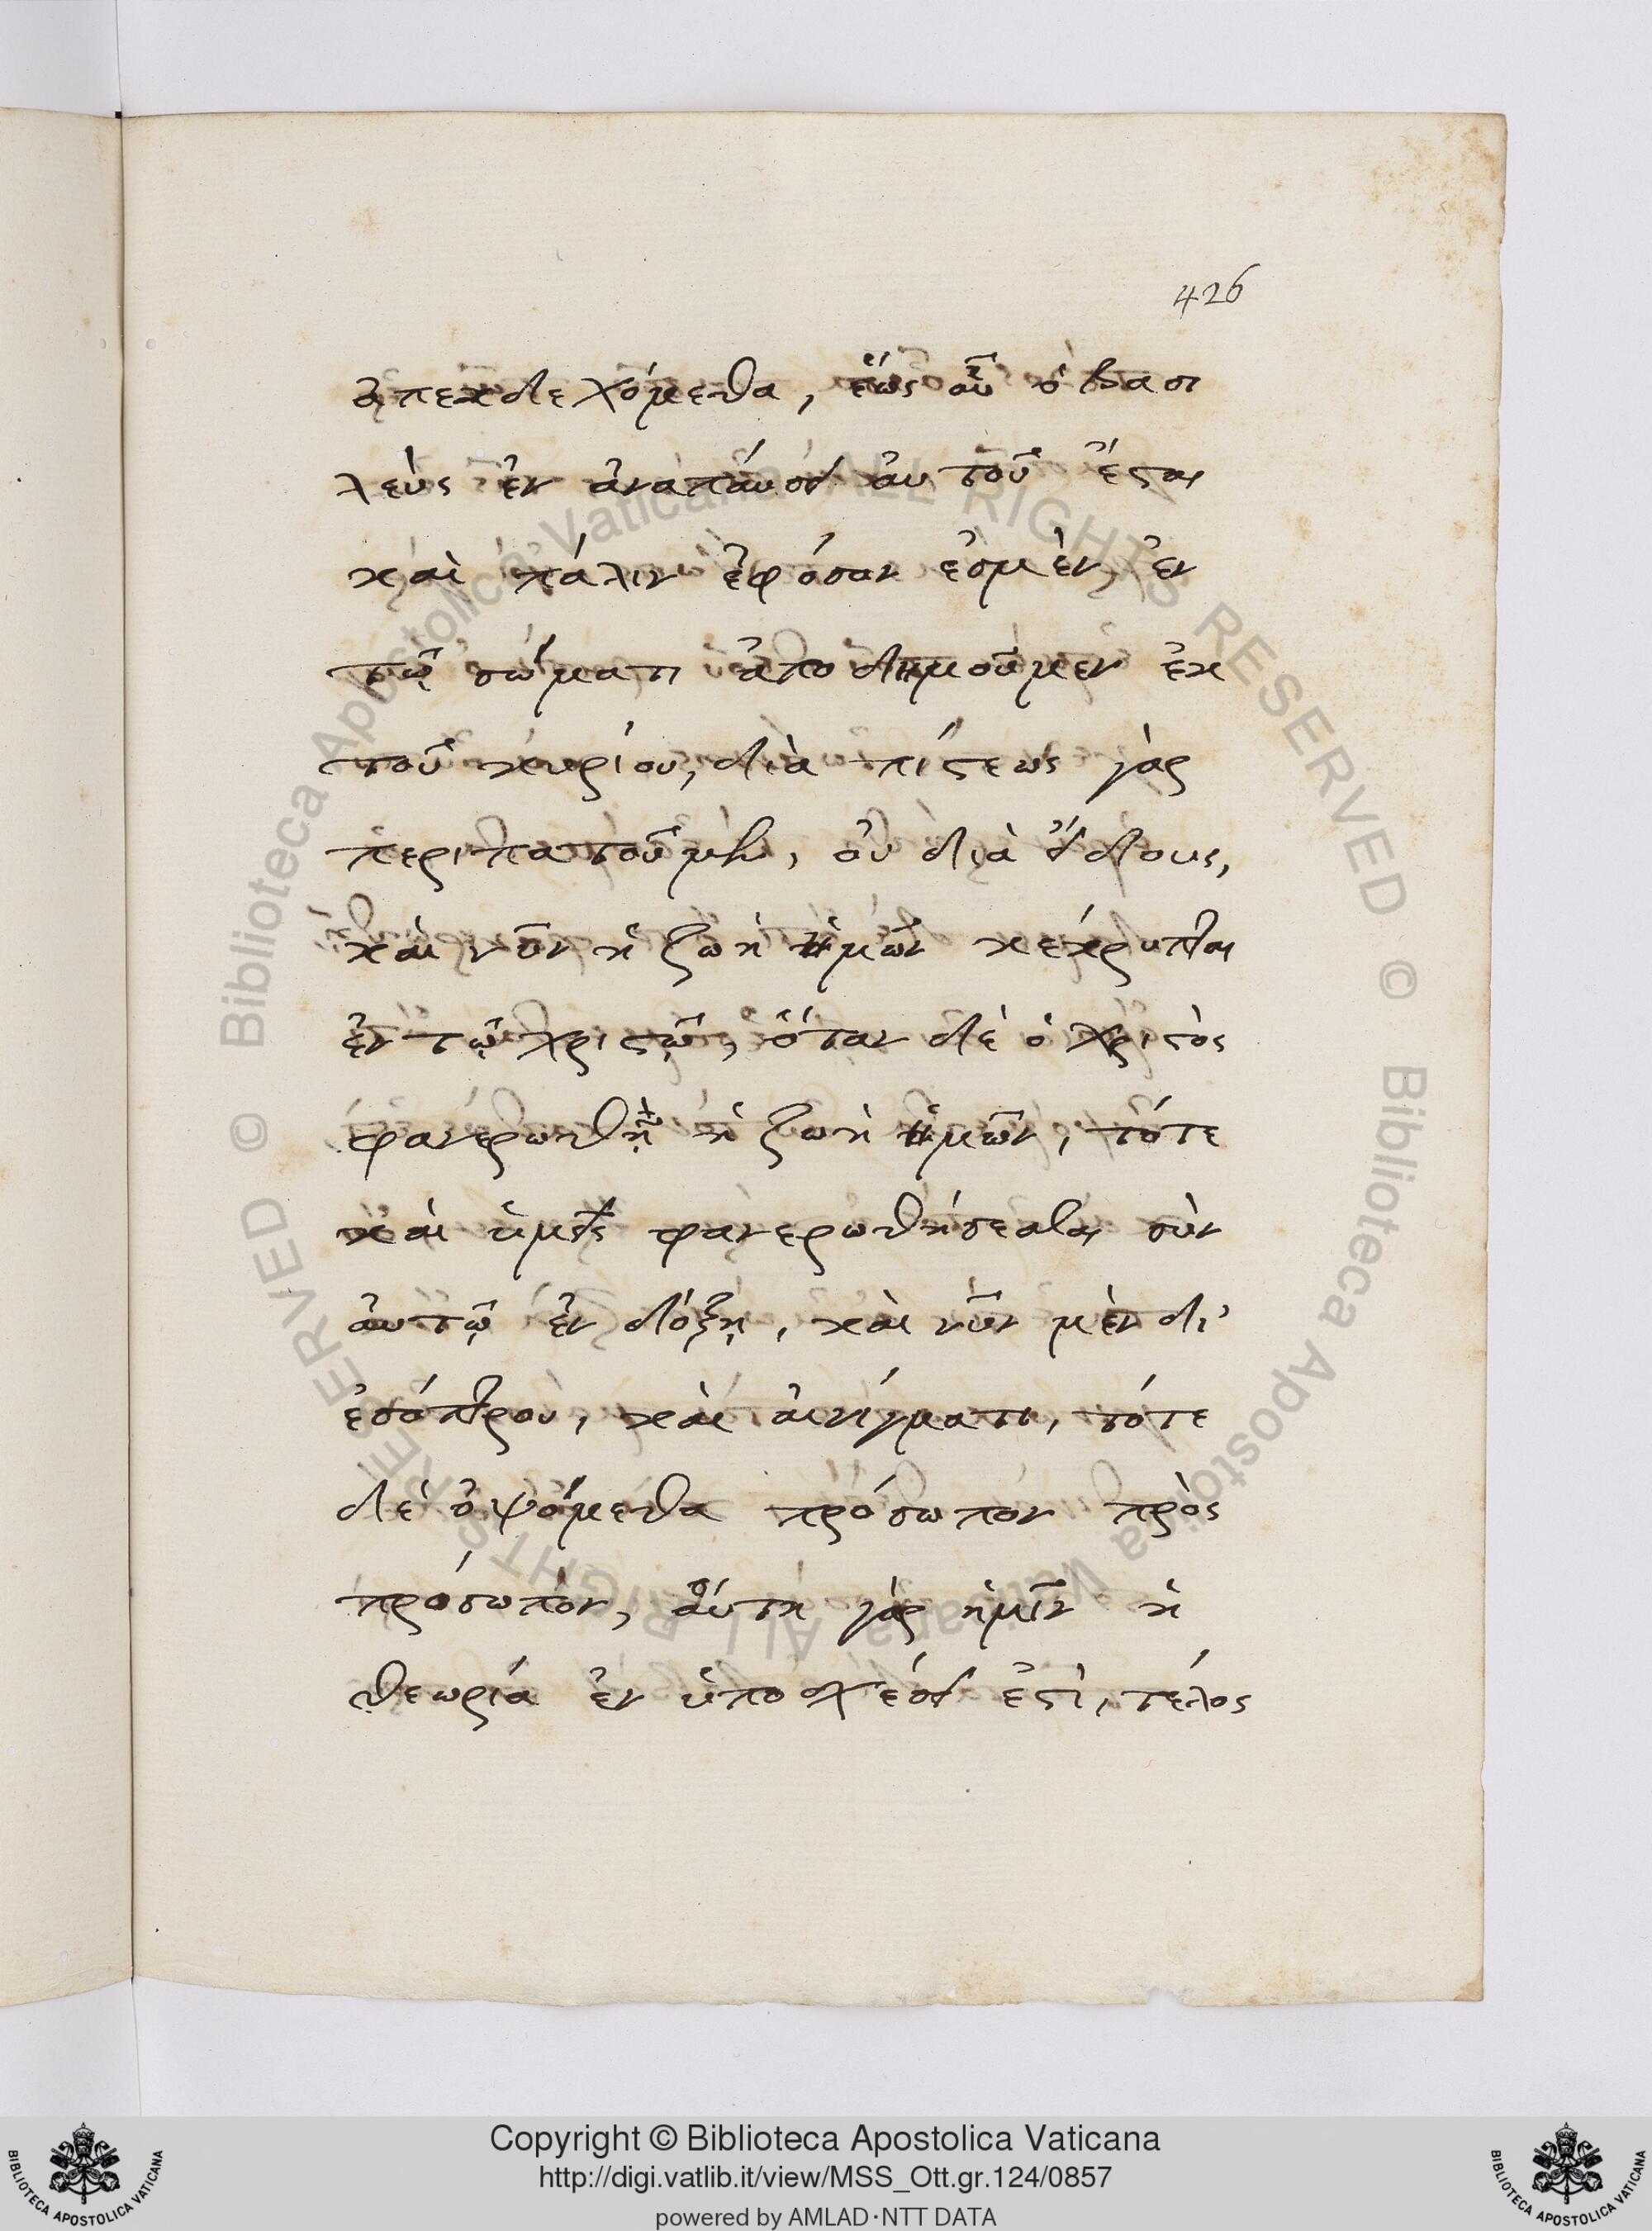 426
ἀπεκδεχόμεθα, ἕως οὗ ὁ βασι
λεὺς ἐν ἀναπαύσει αὐτοῦ ἔσται
καὶ πάλιν ἐφόσον ἐσμὲν, ἐν
τῷ σώματι ἀποδημοῦμεν ἐκ
τοῦ κυρίου, διὰ πίστεως γὰρ
περιπατοῦμεν, οὐ διὰ εἴδους,
καὶ νῦν ἡ ζωὴ ἡμῶν κέκρυπται
ἐν τῷ χριστῷ, ὅταν δὲ ὁ χριστὸς
φανερωθῇ ἡ ζωὴ ἡμῶν, τότε
καὶ ὑμεῖς φανερωθήσεσθαι σὺν
αὐτῷ ἐν δόξῃ, καὶ νῦν μὲν δι'
ἐσόπτρου, καὶ αἰνίγματι, τότε
δὲ ὀψόμεθα πρόσωπον πρὸς
πρόσωπον, αὕτη γὰρ ἡμῖν ἡ
θεωρία ἐν ὑποσχέσει ἐστὶ, τέλος
Copyright © Biblioteca Apostolica Vaticana
http://digi.vatlib.it/view/MSS_Ott.gr.124/0857
powered by AMLAD·NTT DATA
BIBLIOTECA APOSTOLICA VATICANA
BIBLIOTECA APOSTOLICA VATICANA
© Biblioteca Apostolica Vaticana ALL RIGHTS RESERVED © Biblioteca Apostolica Vaticana ALL RIGHTS RESERVED